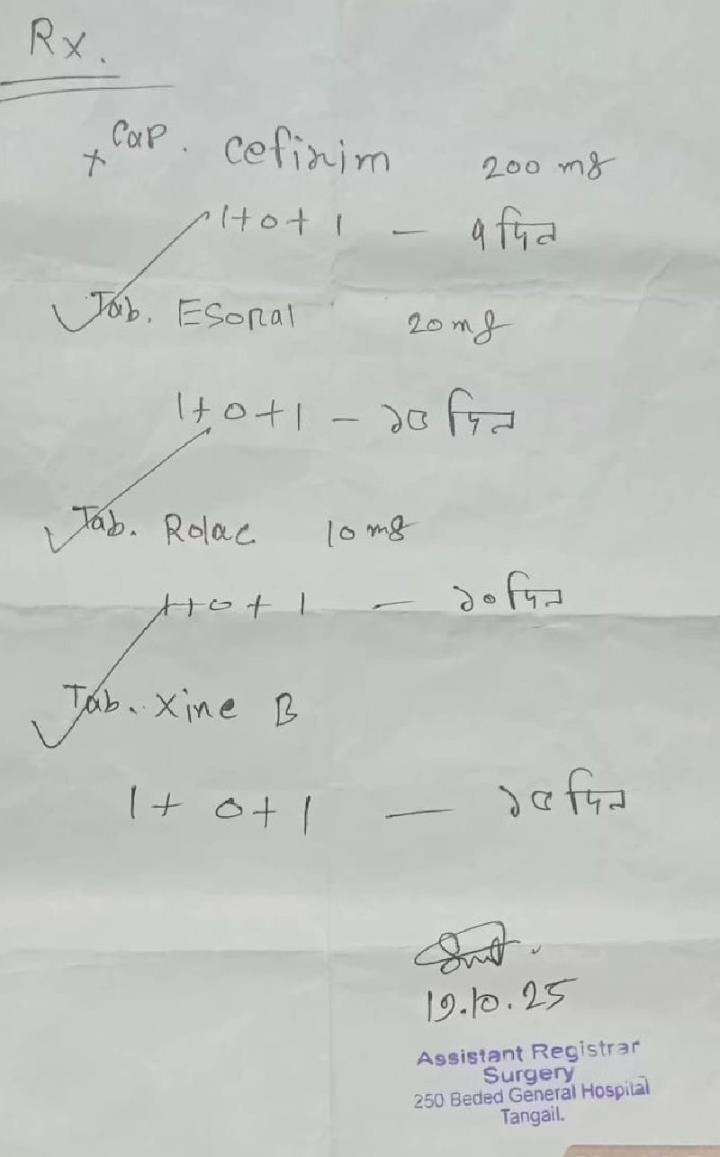 Rx.
Cap. Cefixim 200 mg
1+0+1 — ৭ দিন
Tab. Esoral 20mg
1+0+1 — ১৫ দিন
Tab. Rolac 10 mg
1+0+1 — ১০ দিন
Tab. Xine B
1+0+1 — ১৫ দিন
19.10.25
Assistant Registrar
Surgery
250 Beded General Hospital
Tangail.